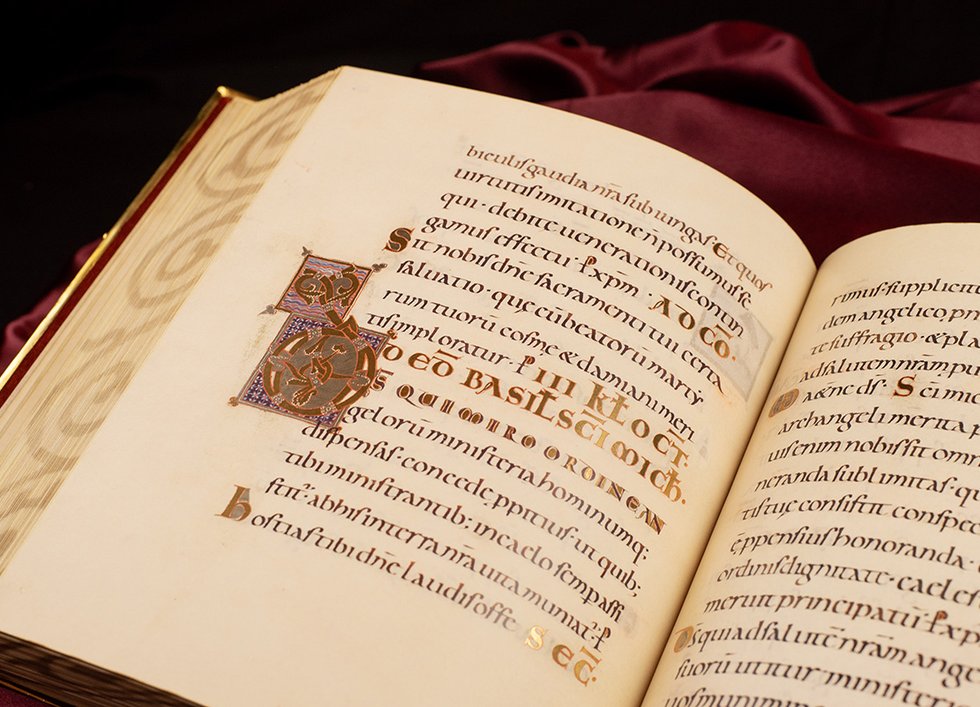 biculis gaudia nr̄a subiungas Et quos
uirtutis imitatione n̄ possumus se
qui · debite uenerationis contin
gamus effectu · P xp̄m · AD CŌ.
Sit nobis dn̄e sacramenti tui certa
saluatio · quę cū beatorū marty
rum tuorū cosmę & damiani meri
tis imploratur · P III kƚ OCT̄.
BASIƚ SC̄I MICħ.
DS QUI MIRO ORDINE AN
gelorū ministeria hominumq;
dispensas · concede ꝓpitius · ut quib;
tibi ministrantib; in caelo semp assi
stit᷑ · ab his in terra nr̄a uita muniat᷑ · P
hostias tibi dn̄e laudis offe SEC̄.
rimus · supplicit
dem angelico ꝓn
te suffragio · & pla
ad salutem nr̄am ꝑu
Sc̄i mic
archangeli merita
uisenim nobis sit omn
neranda sublimitas · qu
consistit conspe
ę ꝓpensius honoranda ·
ordinis dignitate · caeles
meruit principatū · P xp
DS qui ad salutē nr̄am ange
suorū utitur ministeri